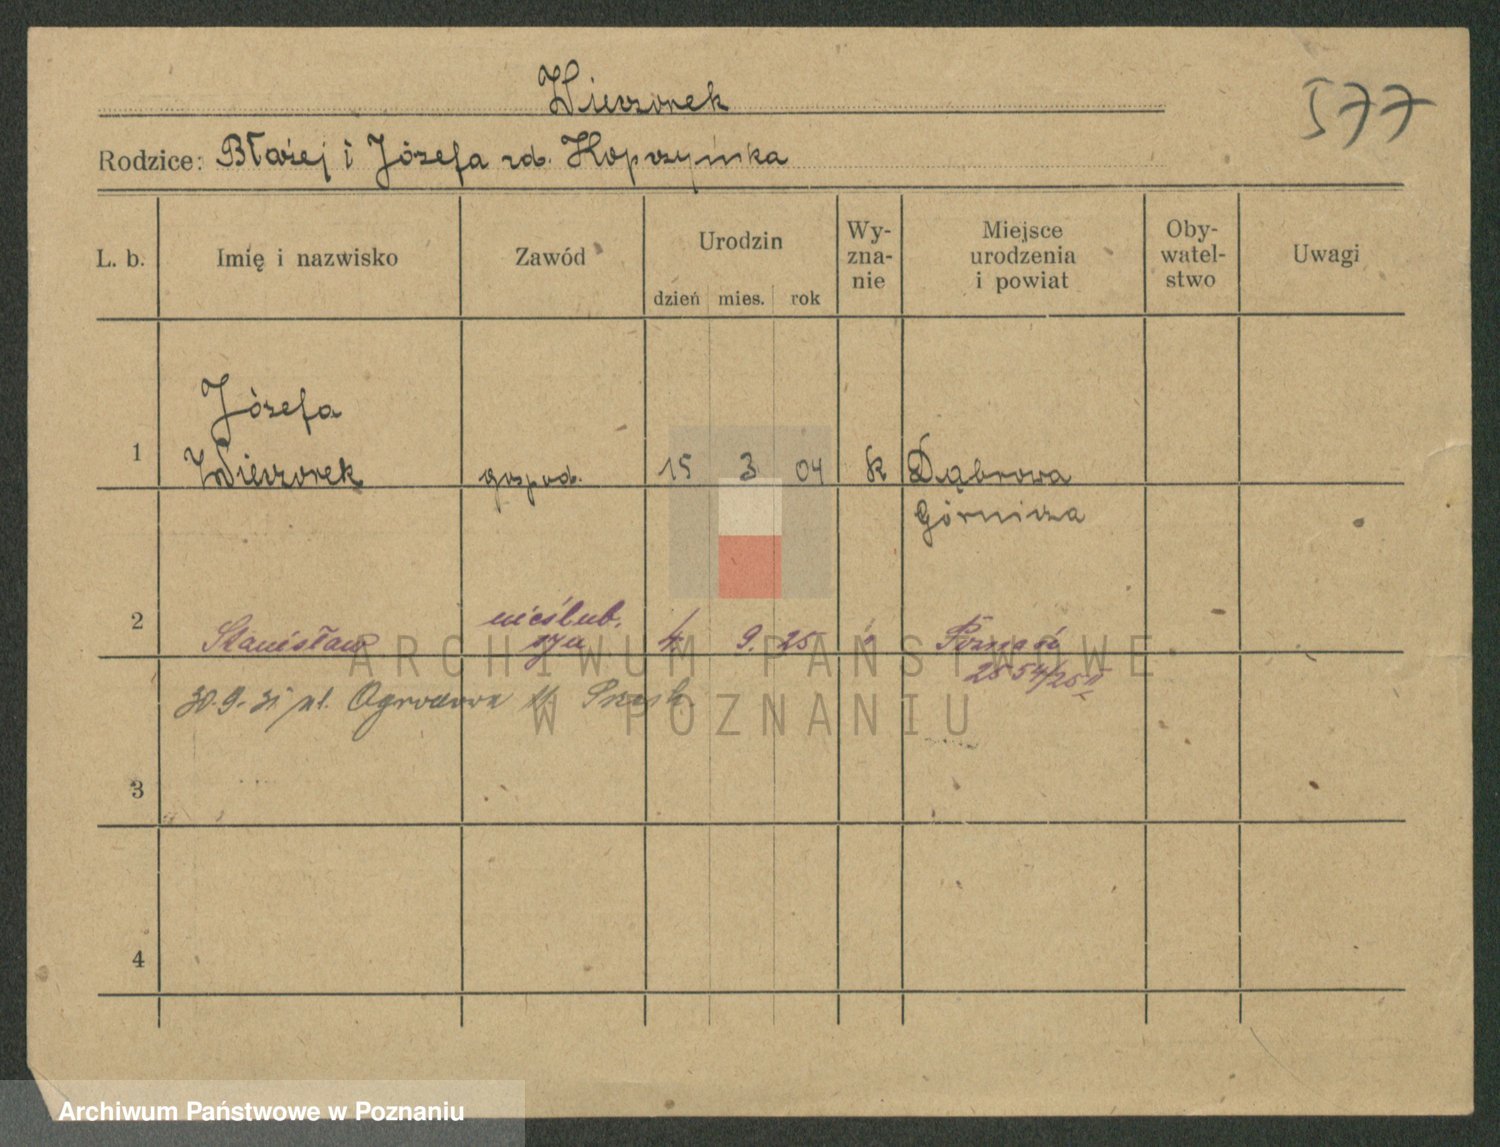 Wieczorek
577
Rodzice: Błażej i Józefa zd. Kopczyńska
L. b. Imię i nazwisko Zawód Urodzin dzień mies. rok Wy-zna-nie Miejsce urodzenia i powiat Oby-watel-stwo Uwagi
Józefa
1 Wieczorek gospod. 15 3 04 k Dąbrowa
Górnicza
nieślub.
2 Stanisław syn 4 9. 25 Poznań
2554/25 II
30.9.31 ul. Ogrodowa
3
4
ARCHIWUM PAŃSTWOWE
W POZNANIU
Archiwum Państwowe w Poznaniu